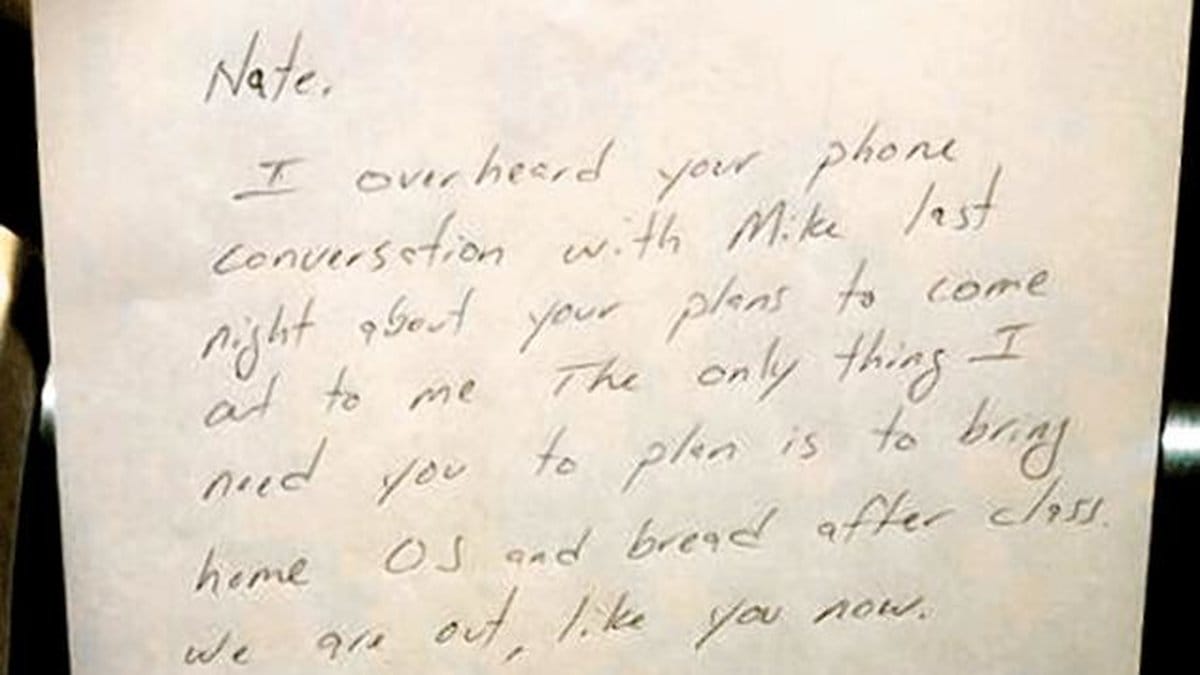 Nate.
I overheard your phone
conversation with Mike last
night about your plans to come
out to me The only thing I
need you to plan is to bring
home OJ and bread after class.
We are out, like you now.